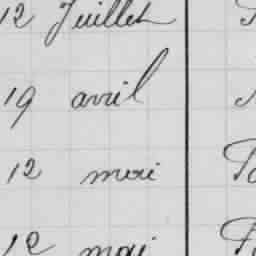 12 Juillet
19 avril
12 mai
12 mai